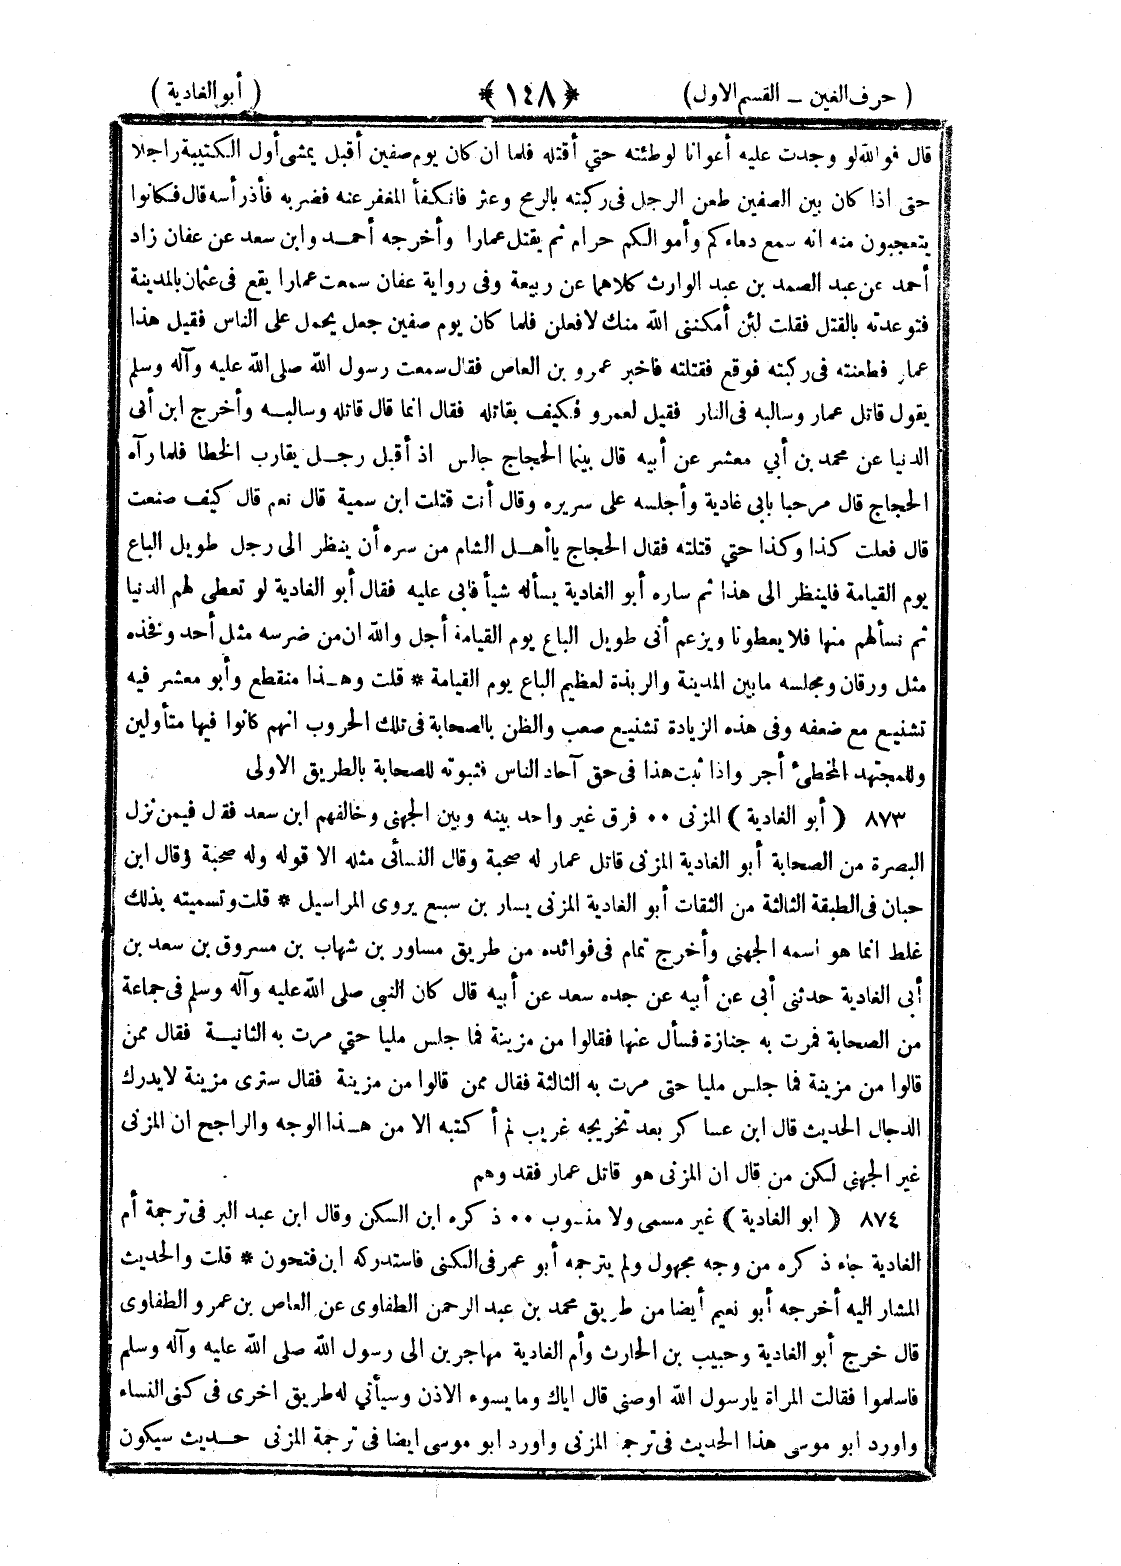 ( حرف الغين – القسم الاول) ﴿ ١٤٨ ﴾ ( أبو الغادية )
قال فوالله لو وجدت عليه أعوانا لوطئته حتي أقتله فلما ان كان يوم صفين أقبل يمشى أول الكتيبة راجلا
حتى اذا كان بين الصفين طعن الرجل فى ركبته بالرمح وعثر فانكفأ المغفر عنه فضربه فأذرأسه قال فكانوا
يتعجبون منه انه سمع دماءكم وأموالكم حرام ثم يقتل عمارا وأخرجه أحمد وابن سعد عن عفان زاد
أحمد عن عبد الصمد بن عبد الوارث كلاهما عن ربيعة وفى رواية عفان سمعت عمارا يقع فى عثمان بالمدينة
فتوعدته بالقتل فقلت لئن أمكننى الله منك لافعلن فلما كان يوم صفين جعل يحمل على الناس فقيل هذا
عمار فطعنته فى ركبته فوقع فقتلته فاخبر عمرو بن العاص فقال سمعت رسول الله صلى الله عليه وآله وسلم
يقول قاتل عمار وسالبه فى النار فقيل لعمرو فكيف بقاتله فقال انما قال قاتله وسالبه وأخرج ابن أبى
الدنيا عن محمد بن أبي معشر عن أبيه قال بينما الحجاج جالس اذ أقبل رجل يقارب الخطا فلما رآه
الحجاج قال مرحبا بابى غادية وأجلسه على سريره وقال أنت قتلت ابن سمية قال نعم قال كيف صنعت
قال فعلت كذا وكذا حتي قتلته فقال الحجاج ياأهل الشام من سره أن ينظر الى رجل طويل الباع
يوم القيامة فلينظر الى هذا ثم ساره أبو الغادية يسأله شيأ فابى عليه فقال أبو الغادية لو تعطى لهم الدنيا
ثم نسألهم منها فلا يعطونا ويزعم أنى طويل الباع يوم القيامة أجل والله ان من ضرسه مثل أحد وفخذه
مثل ورقان ومجلسه مابين المدينة والربذة لعظيم الباع يوم القيامة * قلت وهذا منقطع وأبو معشر فيه
تشنيع مع ضعفه وفى هذه الزيادة تشنيع صعب والظن بالصحابة فى تلك الحروب انهم كانوا فيها متأولين
وللمجتهد المخطئ أجر واذا ثبت هذا فى حق آحاد الناس فثبوته للصحابة بالطريق الاولى
٨٧٣ ( أبو الغادية ) المزنى ٠٠ فرق غير واحد بينه وبين الجهنى وخالفهم ابن سعد فقال فيمن نزل
البصرة من الصحابة أبو الغادية المزنى قاتل عمار له صحبة وقال النسائى مثله الا قوله وله صحبة وقال ابن
حبان فى الطبقة الثالثة من الثقات أبو الغادية المزنى يسار بن سبع يروى المراسيل * قلت وتسميته بذلك
غلط انما هو اسمه الجهنى وأخرج تمام فى فوائده من طريق مساور بن شهاب بن مسروق بن سعد بن
أبى الغادية حدثنى أبى عن أبيه عن جده سعد عن أبيه قال كان النبى صلى الله عليه وآله وسلم فى جماعة
من الصحابة فمرت به جنازة فسأل عنها فقالوا من مزينة فما جلس مليا حتي مرت به الثانية فقال ممن
قالوا من مزينة فما جلس مليا حتى مرت به الثالثة فقال ممن قالوا من مزينة فقال سترى مزينة لايدرك
الدجال الحديث قال ابن عساكر بعد تخريجه غريب لم أكتبه الا من هذا الوجه والراجح ان المزنى
غير الجهنى لكن من قال ان المزنى هو قاتل عمار فقد وهم
٨٧٤ ( ابو الغادية ) غير مسمى ولا منسوب ٠٠ ذكره ابن السكن وقال ابن عبد البر فى ترجمة أم
الغادية جاء ذكره من وجه مجهول ولم يترجمه أبو عمر فى الكنى فاستدركه ابن فتحون * قلت والحديث
المشار اليه أخرجه أبو نعيم أيضا من طريق محمد بن عبد الرحمن الطفاوى عن العاص بن عمرو الطفاوى
قال خرج أبو الغادية وحبيب بن الحارث وأم الغادية مهاجرين الى رسول الله صلى الله عليه وآله وسلم
فاسلموا فقالت المراة يارسول الله اوصنى قال اياك وما يسوء الاذن وسيأتي له طريق اخرى فى كنى النساء
واورد ابو موسى هذا الحديث فى ترجمة المزنى واورد ابو موسى ايضا فى ترجمة المزنى حديث سيكون